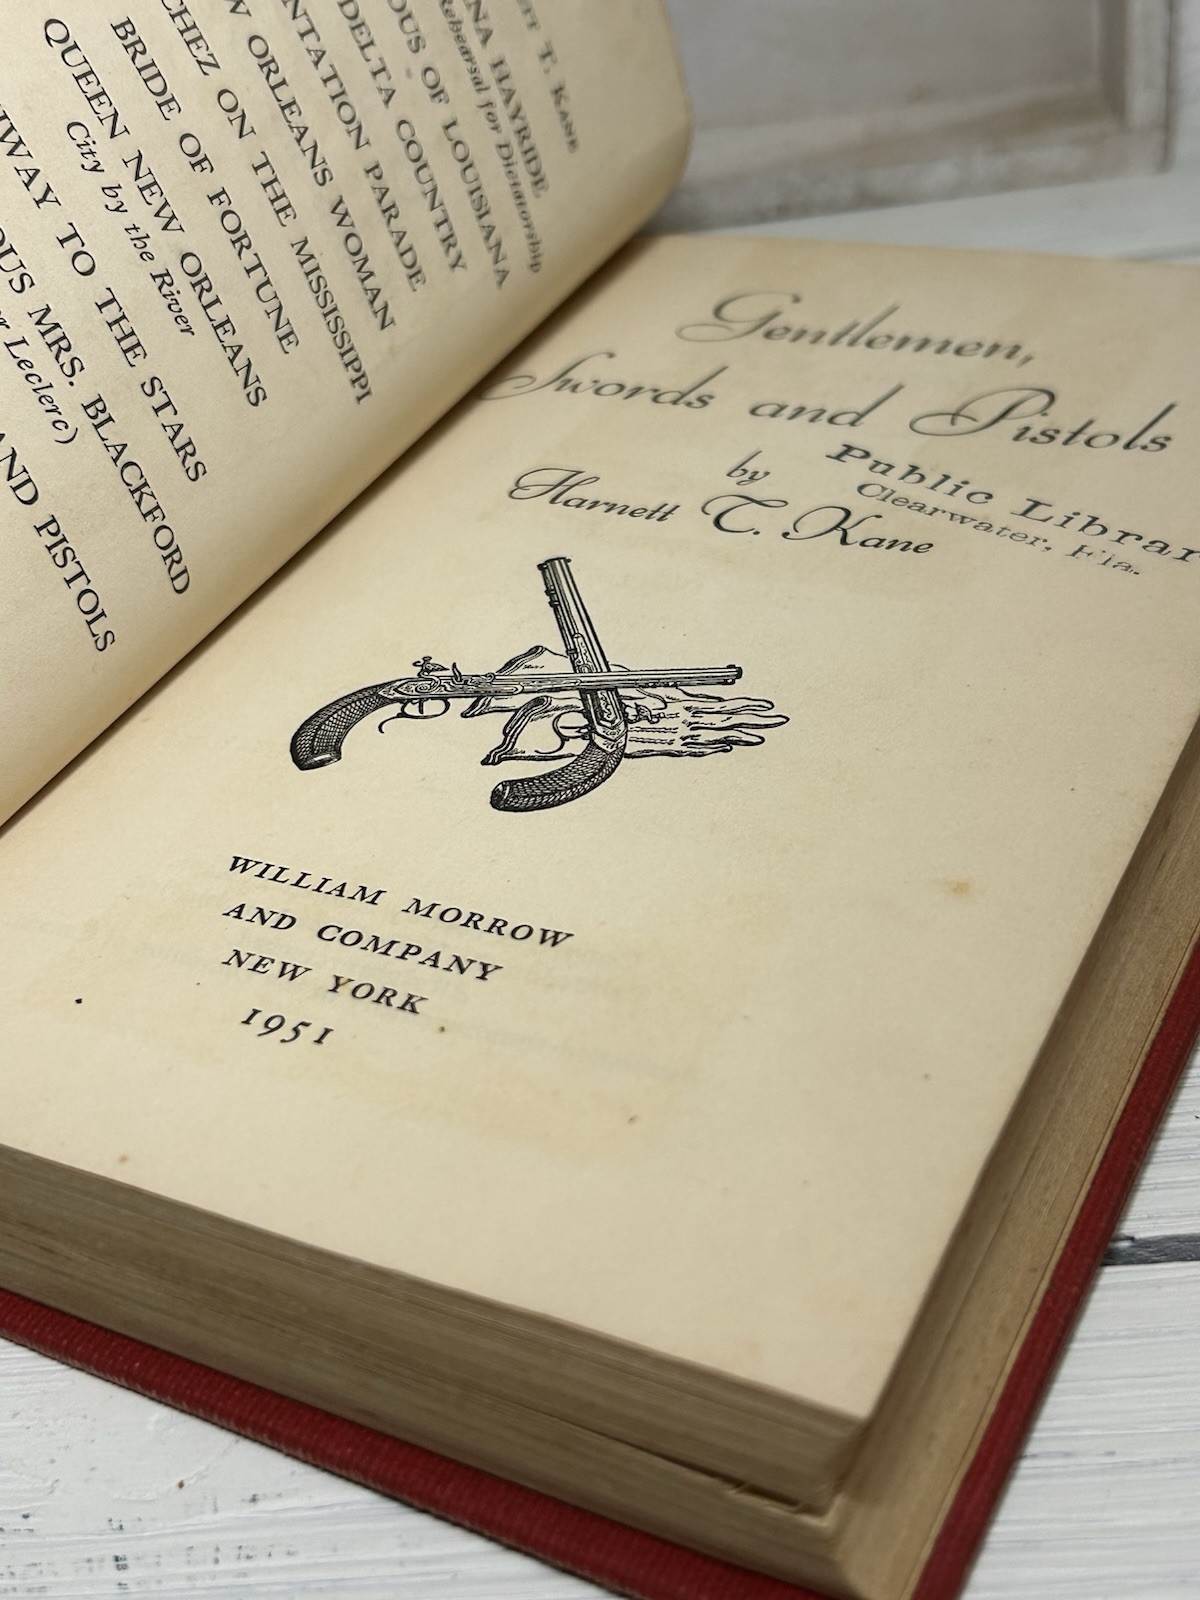 T. KANE
NA HAYRIDE
Rehearsal for Dictatorship
OUS OF LOUISIANA
DELTA COUNTRY
NTATION PARADE
W ORLEANS WOMAN
CHEZ ON THE MISSISSIPPI
BRIDE OF FORTUNE
QUEEN NEW ORLEANS
City by the River
HWAY TO THE STARS
OUS MRS. BLACKFORD
r Leclerc)
AND PISTOLS
Gentlemen,
Swords and Pistols
by
Harnett T. Kane
Public Librar
Clearwater, Fla.
WILLIAM MORROW
AND COMPANY
NEW YORK
1951